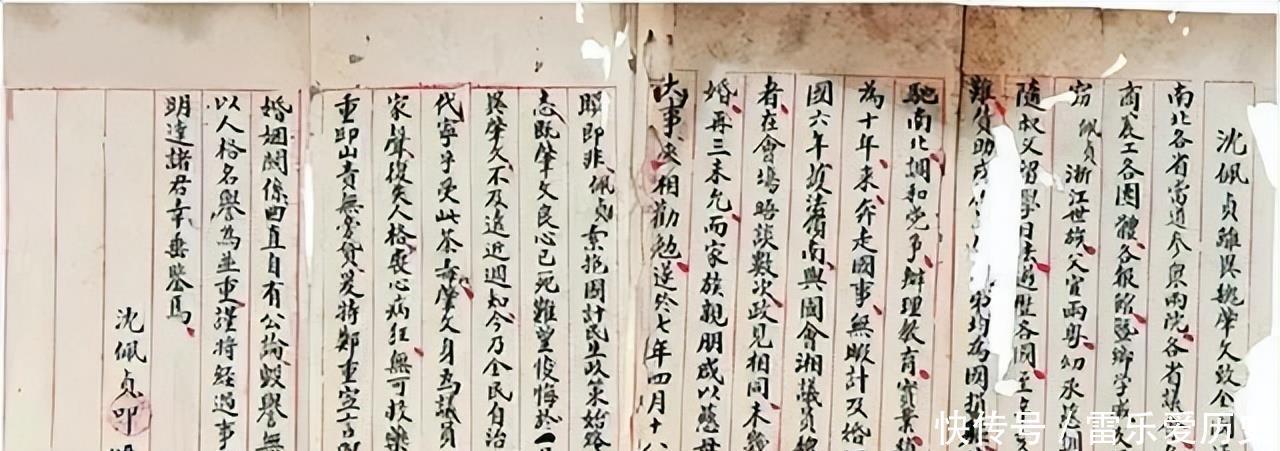 沈佩貞離異魏肇文致全國
南北各省當道參與兩院各省議
商農工各團體各報館暨鄉學
竊佩貞浙江世族父宦兩粵幼承
隨叔父留學日法過歷各國至
難貸助成 弟均為因
馳南北調和党爭辦理教育實業
為十年來奔走國事無暇計及婚
國六年護法嶺南與國會湘議員魏
者在會塲晤談數次政見相同未幾
婚再三未允而家族親朋咸以慈母
大事决相勸勉遂於七年四月十八
聯即非佩貞素抱國計民生政策始終
志既肇文良心已死難望悛悔於一
與肇文不及遠近週知今乃全民自治
代寧乎受此荼毒肇文身為議員
家聲復失人格喪心病狂無可救藥
重即山責無旁貸爰特鄭重宣言
婚姻關係曲直自有公論毀譽無
以人格名譽為並重謹將經過事
明達諸君幸垂鑒焉
沈佩貞叩
快传号 / 雷乐爱历史